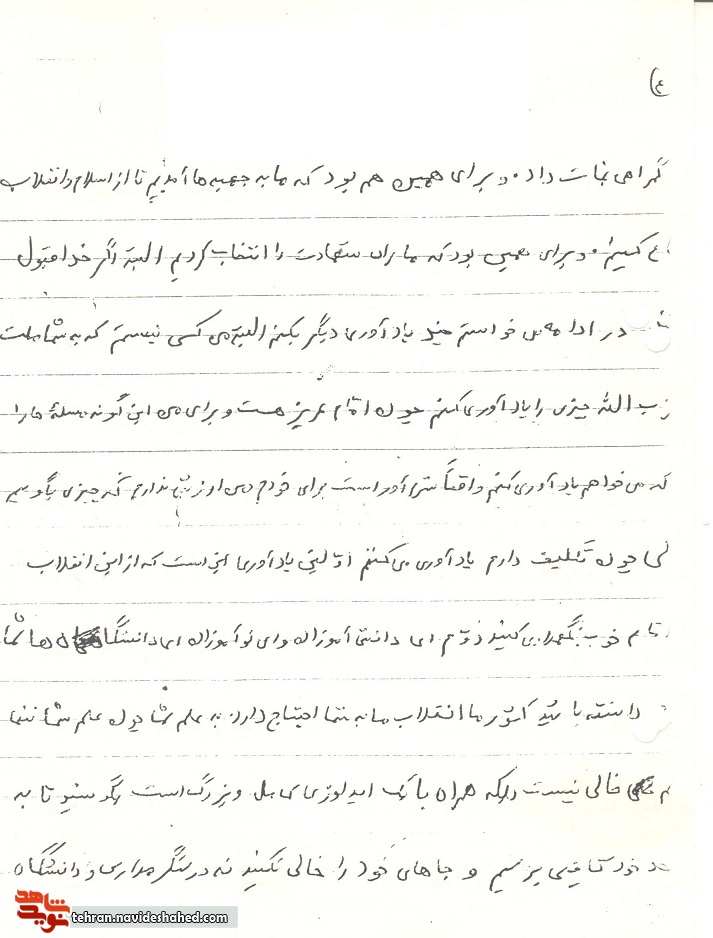 (۴
گمراهی نجات داد. و برای همین هم بود که ما به جبهه ها آمدیم تا از اسلام و انقلاب
ع کنیم. و برای همین بود که ما راه شهادت را انتخاب کردیم البته اگر خدا قبول
در ادامه من خواستم چند یاد آوری دیگر بکنم البته من کسی نیستم که به شما ملت
زب الله چیزی را یاد آوری کنم چون امام عزیز هست و برای من این گونه مسئله ها را
که می خواهم یاد آوری کنم واقعاً شرم آور است برای خودم من ارزش ندارم که چیزی بگویم
لی چون تکلیف دارم یاد آوری می کنم اوّلین یاد آوری این است که از این انقلاب
امام خوب نگهداری کنید دوّم ای دانش آموزان وای نو آموزان ای دانشگاه ها شما
داشته باشید کشور ما انقلاب ما به شما احتیاج دارد به علم شما چون علم شما تنها
م خالی نیست بلکه همراه با یک ایدلوژی کامل و بزرگ است دیگر سعی تا به
حد خود کفایی برسیم و جاهای خود را خالی نکنید نه در سنگر مداری و دانشگاه
شاهد
نوید
tehran.navideshahed.com